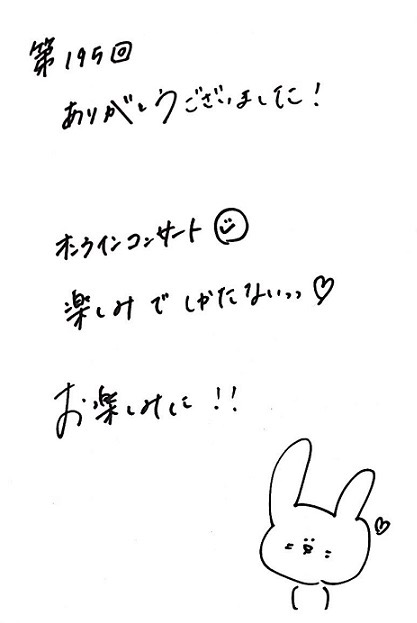 第195回
ありがとうございました！
オンラインコンサート
楽しみでしかたないっっ♡
お楽しみに！！